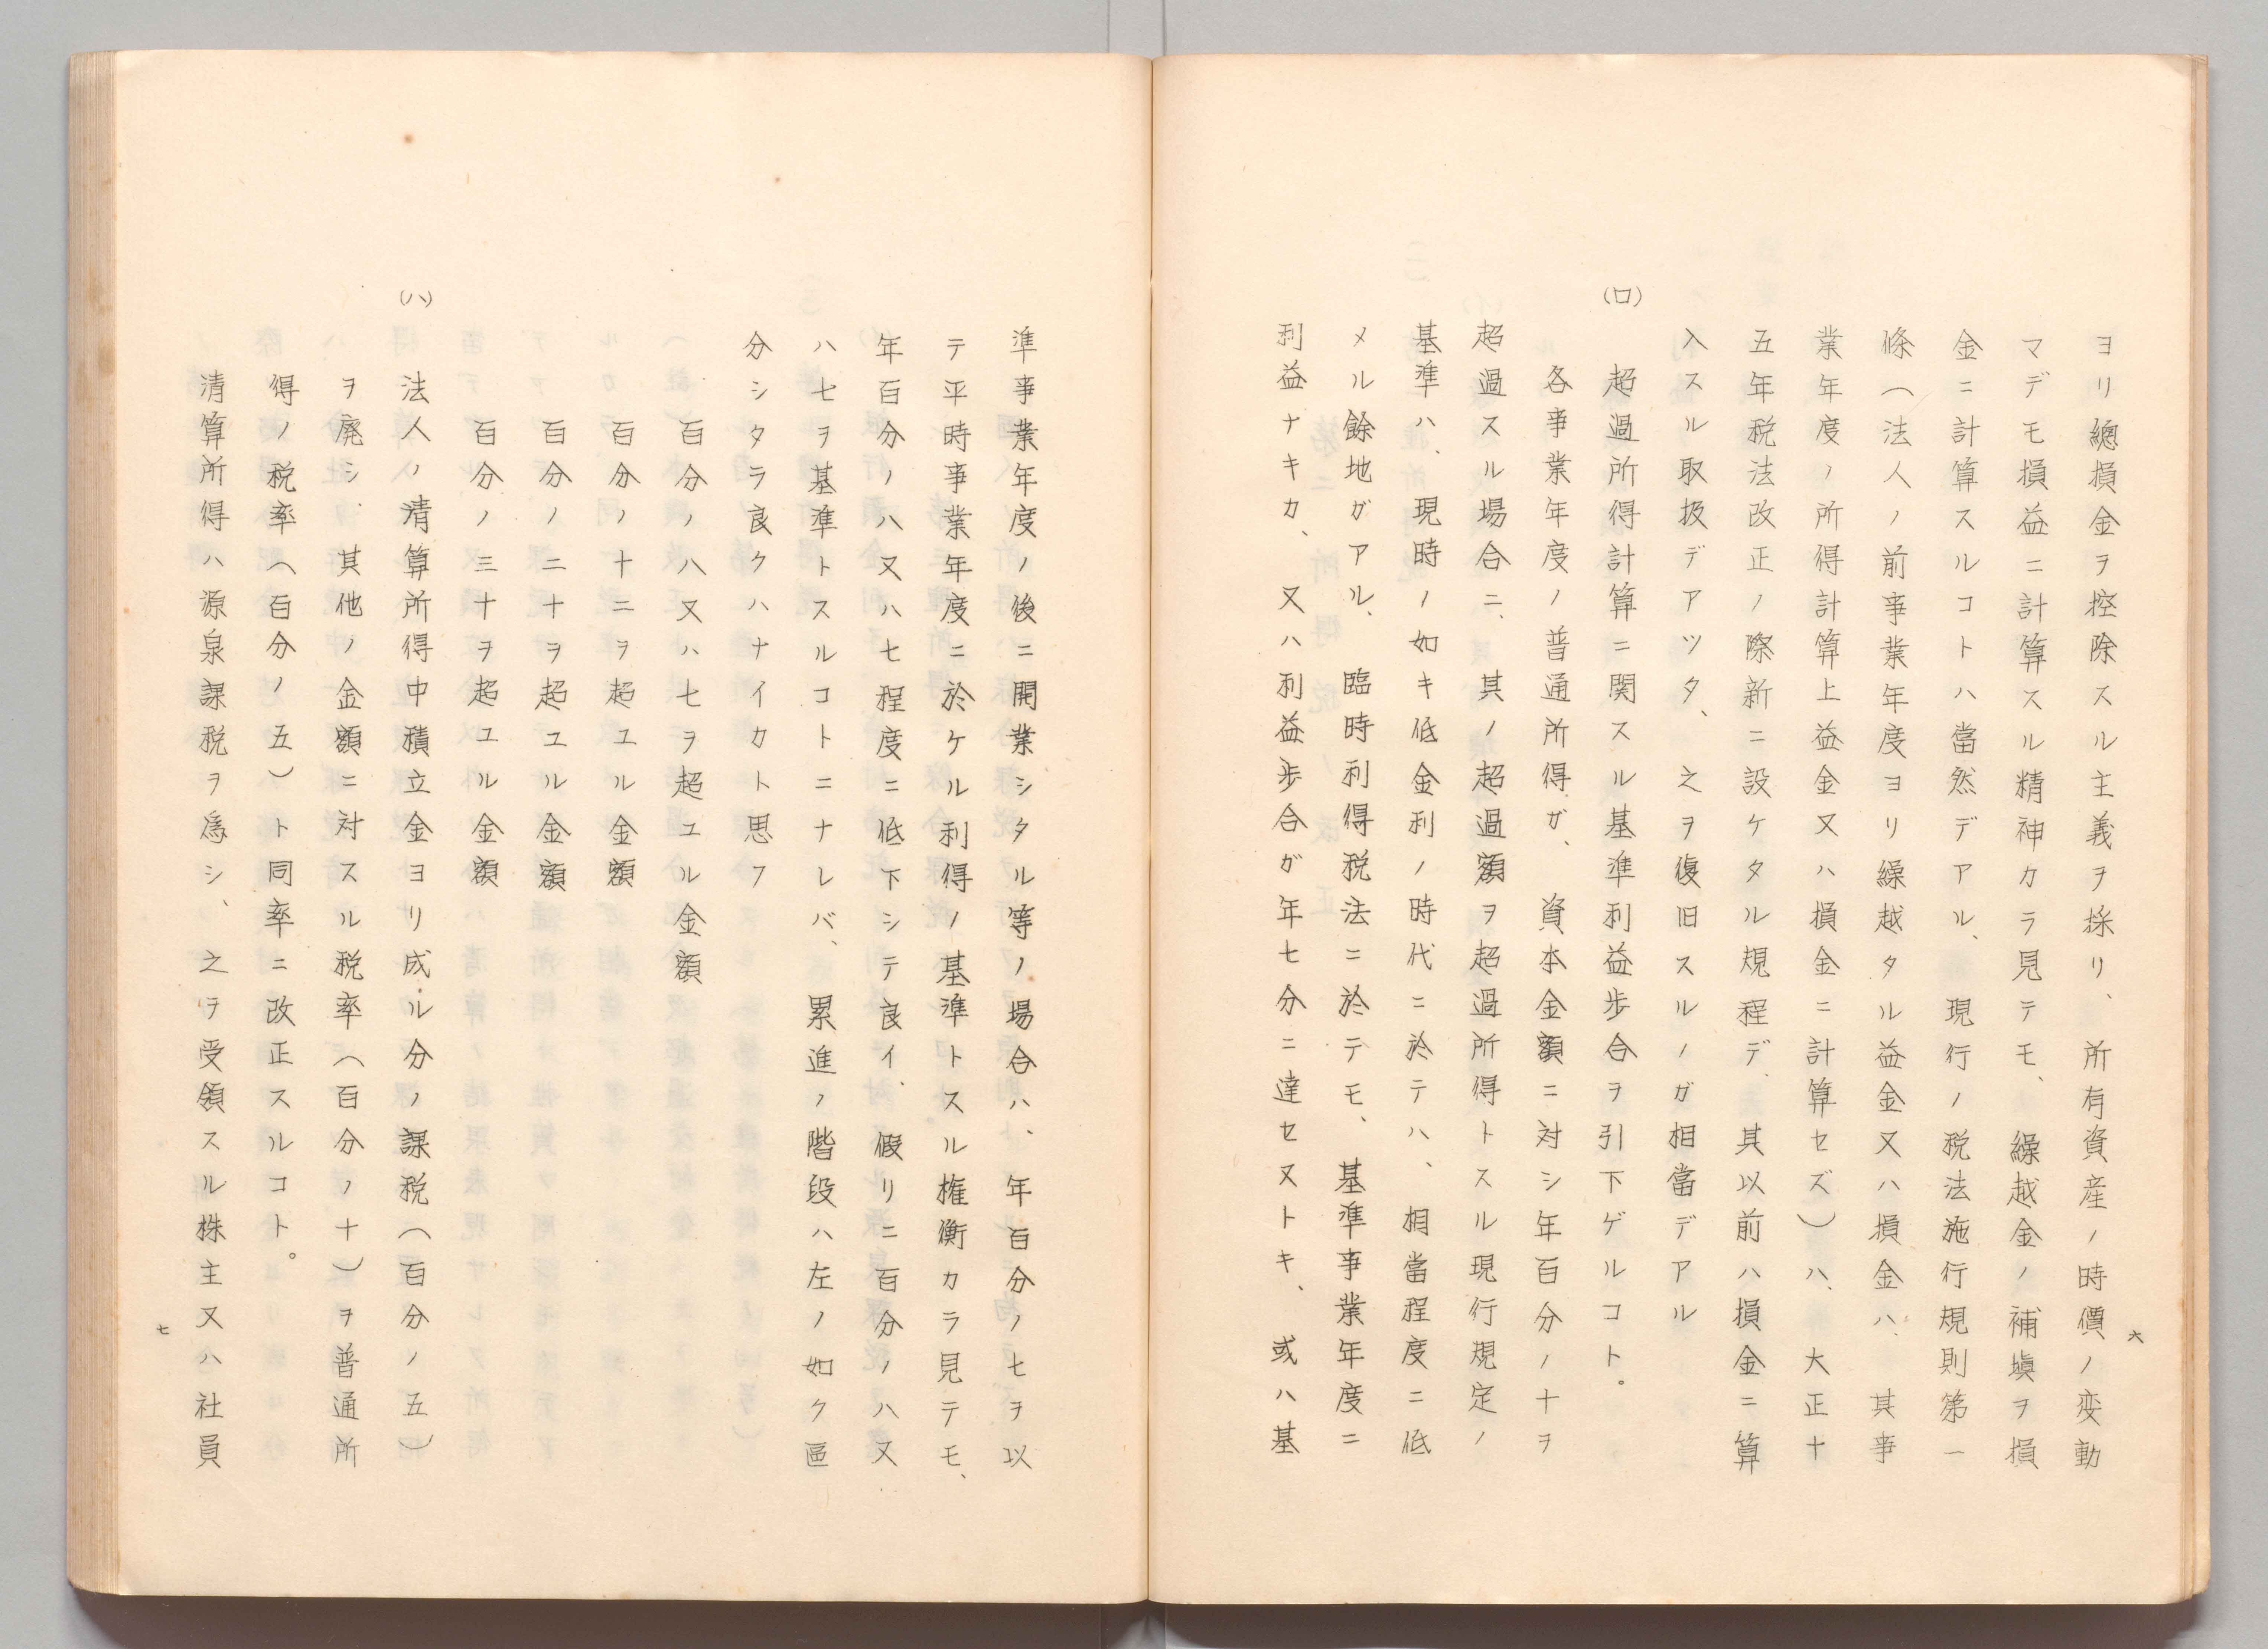 ヨリ總損金ヲ控除スル主義ヲ採リ、所有資産ノ時價ノ変動
マデモ損益ニ計算スル精神カラ見テモ、繰越金ノ補塡ヲ損
金ニ計算スルコトハ當然デアル、現行ノ税法施行規則第一
條（法人ノ前事業年度ヨリ繰越タル益金又ハ損金ハ、其事
業年度ノ所得計算上益金又ハ損金ニ計算セズ）ハ、大正十
五年税法改正ノ際新ニ設ケタル規程デ、其以前ハ損金ニ算
入スル取扱デアツタ、之ヲ復旧スルノガ相當デアル
(ロ)　超過所得計算ニ関スル基準利益歩合ヲ引下ゲルコト。
各事業年度ノ普通所得ガ、資本金額ニ対シ年百分ノ十ヲ
超過スル場合ニ、其ノ超過額ヲ超過所得トスル現行規定ノ
基準ハ、現時ノ如キ低金利ノ時代ニ於テハ、相當程度ニ低
メル餘地ガアル、臨時利得税法ニ於テモ、基準事業年度ニ
利益ナキカ、又ハ利益歩合ガ年七分ニ達セヌトキ、或ハ基
六
準事業年度ノ後ニ開業シタル等ノ場合ハ、年百分ノ七ヲ以
テ平時事業年度ニ於ケル利得ノ基準トスル権衡カラ見テモ、
年百分ノ八又ハ七程度ニ低下シテ良イ、假リニ百分ノ八又
ハ七ヲ基準トスルコトニナレバ、累進ノ階段ハ左ノ如ク區
分シタラ良クハナイカト思フ
百分ノ八又ハ七ヲ超ユル金額
百分ノ十二ヲ超ユル金額
百分ノ二十ヲ超ユル金額
百分ノ三十ヲ超ユル金額
(ハ)　法人ノ清算所得中積立金ヨリ成ル分ノ課税（百分ノ五）
ヲ廃シ、其他ノ金額ニ対スル税率（百分ノ十）ヲ普通所
得ノ税率（百分ノ五）ト同率ニ改正スルコト。
清算所得ハ源泉課税ヲ為シ、之ヲ受領スル株主又ハ社員
七